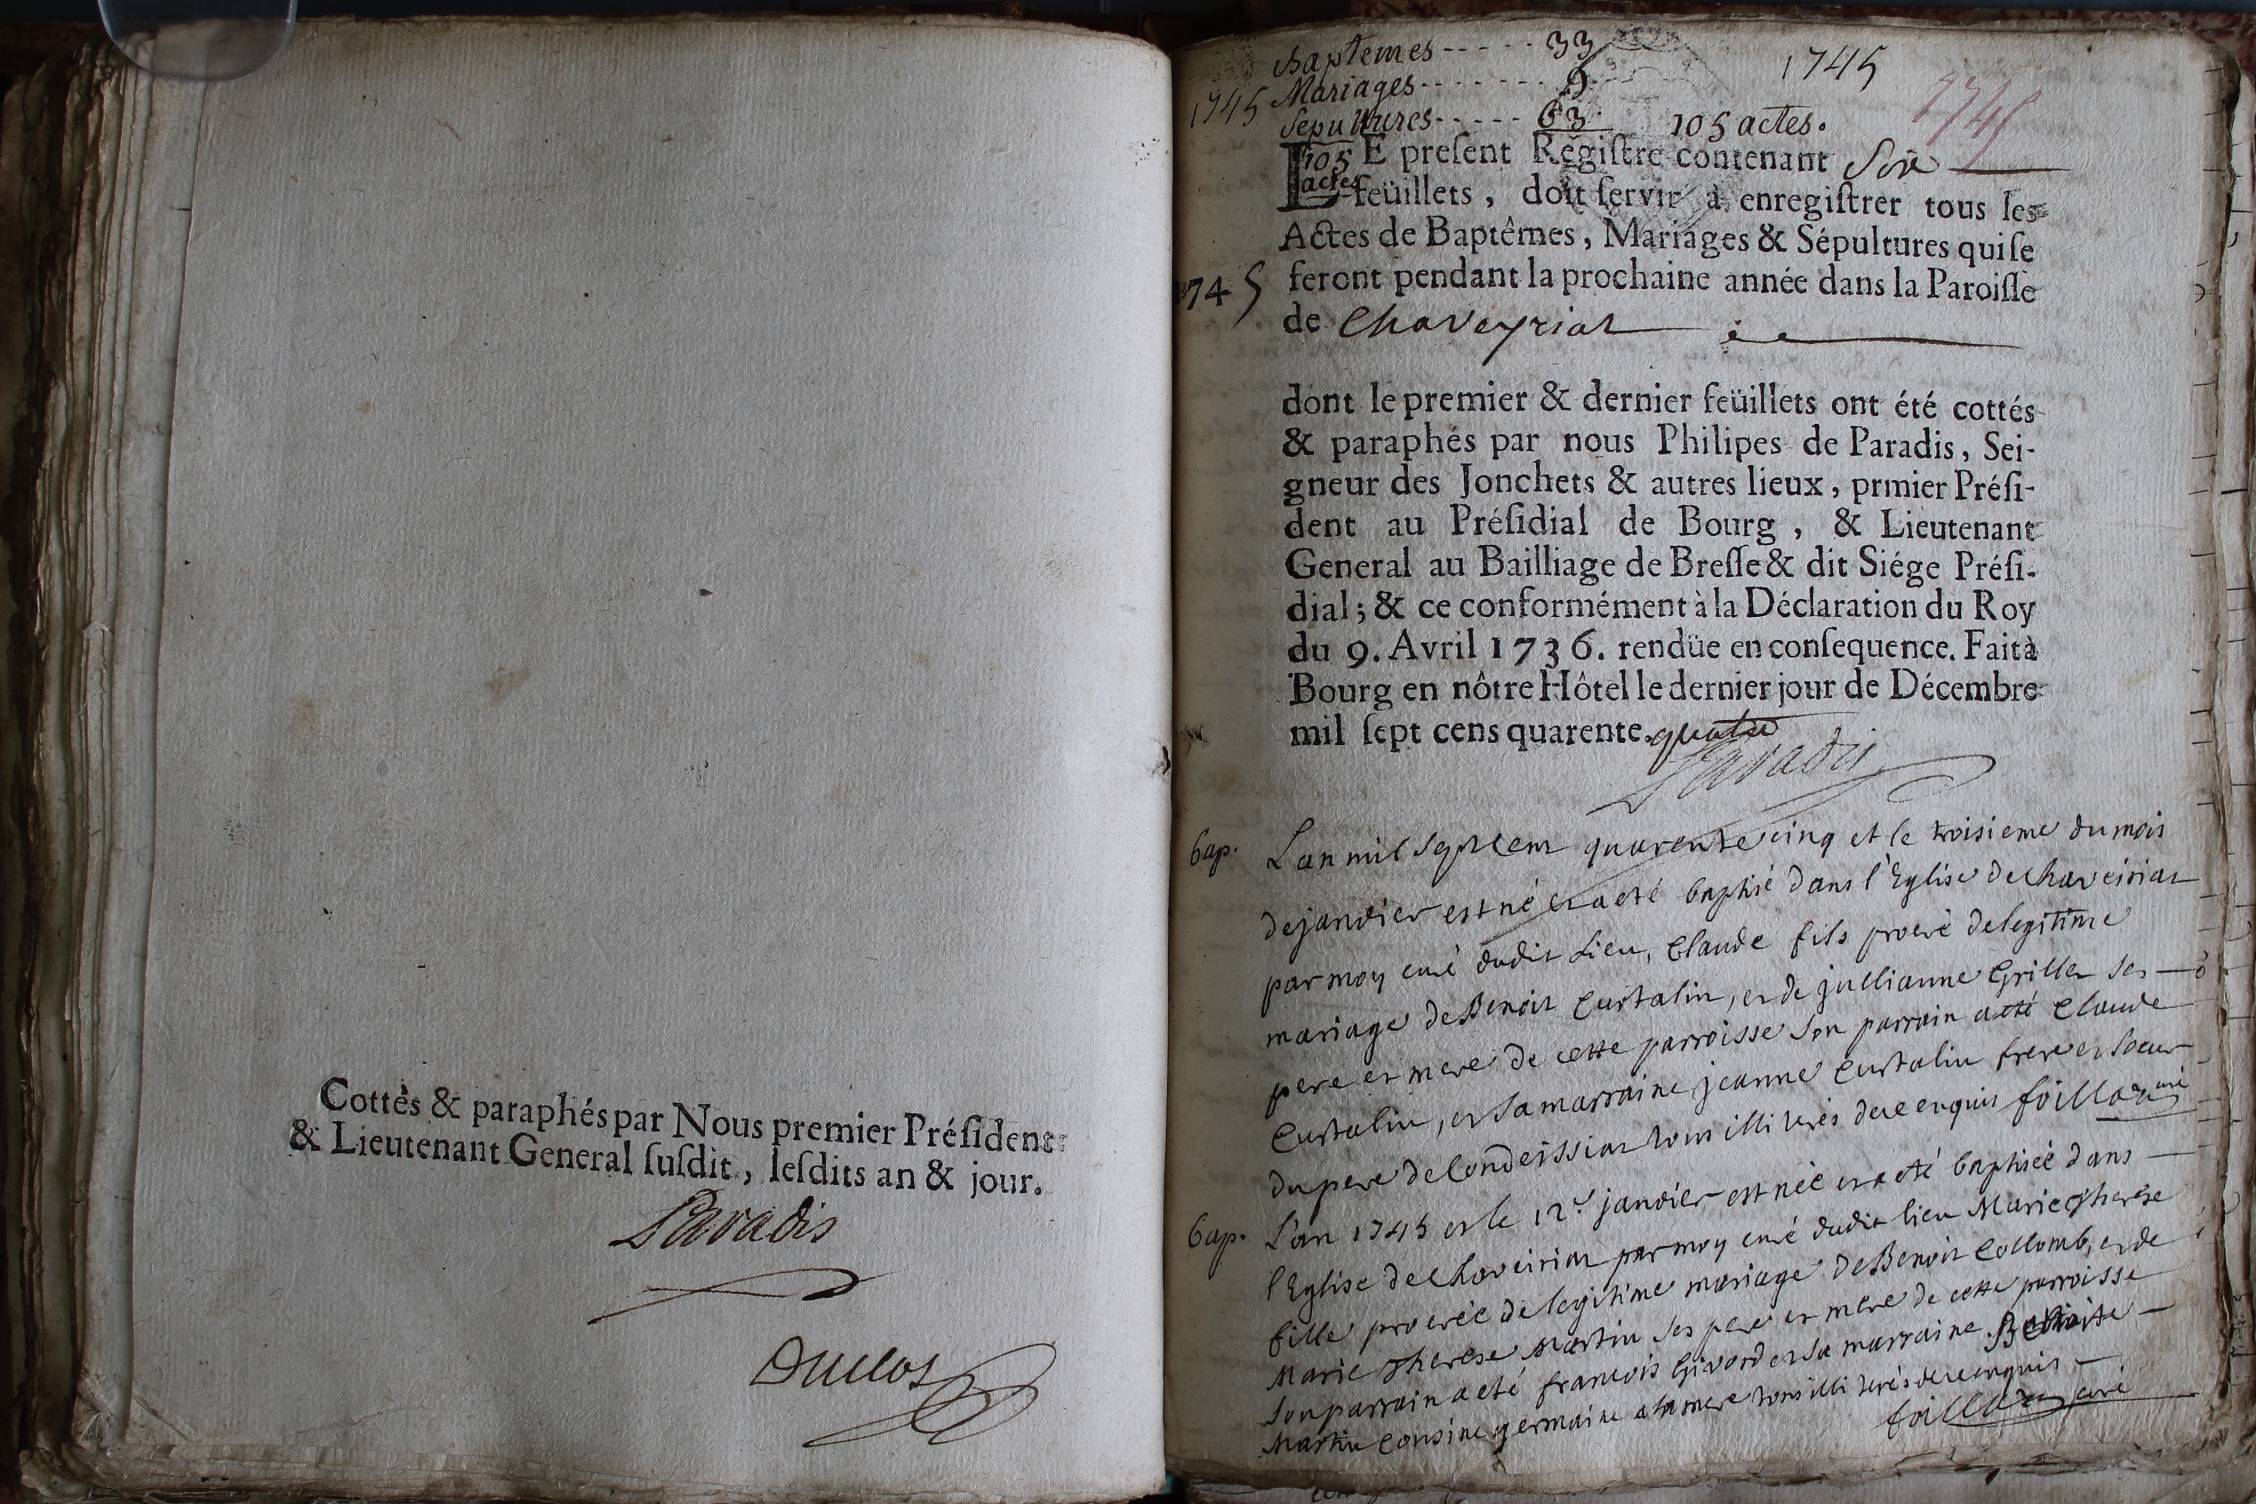 Cottés & paraphés par Nous premier Préſident
& Lieutenant General ſuſdit, leſdits an & jour.
Paradis
Duclos
Baptemes ----- 33
Mariages ------- 9
Sepultures ----- 63
1745
105 actes.
1745
1745
105
actes
LE preſent Régiſtre contenant
feüillets, doit ſervir à enregiſtrer tous les
Actes de Baptêmes, Mariages & Sépultures qui ſe
feront pendant la prochaine année dans la Paroiſſe
de Chaveyriat
1745
dont le premier & dernier feüillets ont été cottés
& paraphés par nous Philipes de Paradis, Sei-
gneur des Jonchets & autres lieux, prmier Préſi-
dent au Préſidial de Bourg, & Lieutenant
General au Bailliage de Breſſe & dit Siége Préſi-
dial; & ce conformément à la Déclaration du Roy
du 9. Avril 1736. rendüe en conſequence. Fait à
Bourg en nôtre Hôtel le dernier jour de Décembre
mil ſept cens quarente. quatre
Paradis
bap.
L'an mil sept cent quarente cinq et le troisieme du mois
de janvier est né et a eté baptisé dans l'Eglise de chaveiriat
par moy curé dudit Lieu, Claude fils procréé de legitime
mariage de Benoit Curtalin, et de jullianne Grillet ses
pere et mere de cette parroisse son parrain a eté Claude
Curtalin, et sa marraine jeanne Curtalin frere et soeur
du pere de Condeissiat tous illiterés de ce enquis foillard curé
bap.
L'an 1745 et le 12e janvier est née et a eté baptisée dans
l'Eglise de chaveiriat par moy curé dudit lieu Marie therése
fille procréée de legitime mariage de Benoit Collomb, et de
Marie Therese Martin ses pere et mere de cette parroisse
son parrain a eté francois Givord et sa marraine Benoite
Martin cousine germaine a la mere tous illiterés de ce enquis
foillard curé